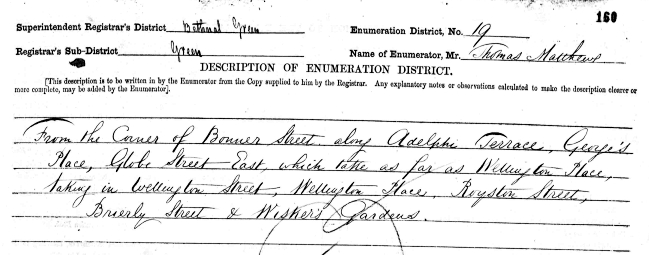 160
Superintendent Registrar's District Bethnal Green Enumeration District, No. 19
Registrar's Sub-District Green Name of Enumerator, Mr. Thomas Matthews
DESCRIPTION OF ENUMERATION DISTRICT.
[This description is to be written in by the Enumerator from the Copy supplied to him by the Registrar. Any explanatory notes or observations calculated to make the description clearer or
more complete, may be added by the Enumerator].
From the Corner of Bonner Street along Adelphi Terrace, George's
Place, Globe Street East, which take as far as Wellington Place,
taking in Wellington Street, Wellington Place, Royston Street,
Brierly Street & Wisker's Gardens.